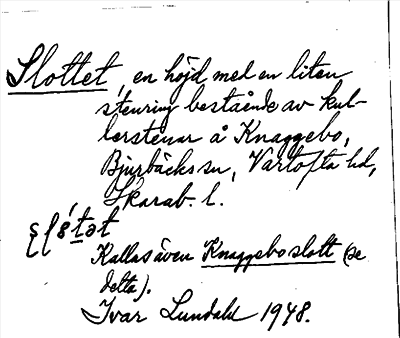 Slottet, en höjd med en liten
stenring bestående av kul-
lerstenar å Knaggebo,
Bjurbäcks sn, Vartofta hd,
Skarab. l.
Kallas även Knaggebo slott (se
detta).
Ivar Lundahl 1948.